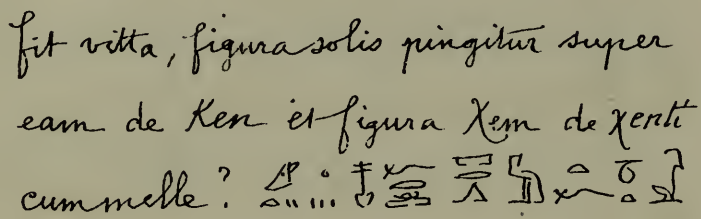 fit vitta, figura solis pingitur super
eam de Ken et figura Xem de xenti
cum melle?